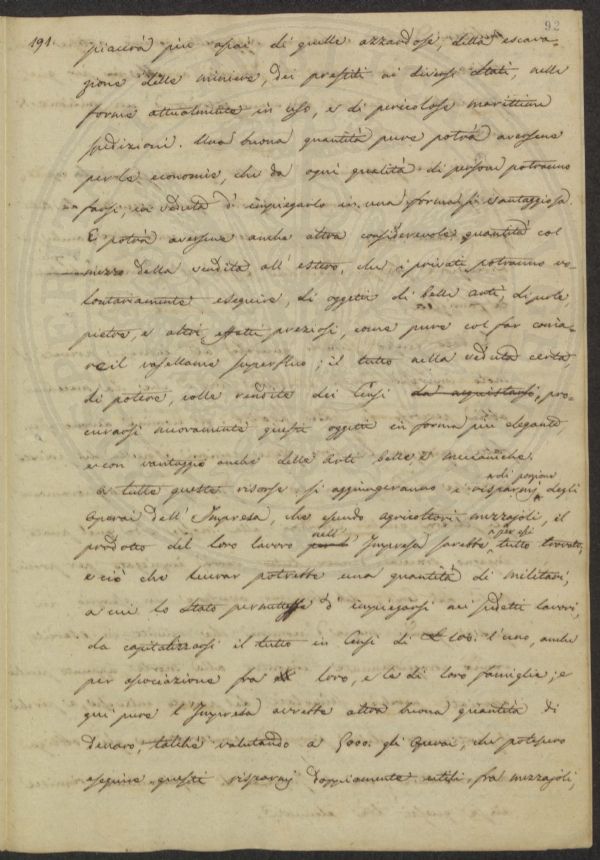 92
191. piacerà più assai di quelle azzardose, della escava-
zione delle miniere, dei prestiti ai diversi Stati, nelle
forme attualmente in uso, e di pericolose marittime
spedizioni. Una buona quantità pure potrà aversene
per le economie, che da ogni qualità di persone potranno
farsi, in veduta d' impiegarlo in una forma sì vantaggiosa.
E potrà aversene anche altra considerevole quantità col
mezzo della vendita all' estero, che i privati potranno vo-
lontariamente eseguire, di oggetti di belle arti, di perle,
pietre, e altri effetti preziosi, come pure col far conia-
re il vasellame superfluo; il tutto nella veduta certa,
di potere, colle rendite dei Censi da acquistarsi, pro-
curarsi nuovamente questi oggetti in forma più elegante
e con vantaggio anche delle Arti belle e mecaniche.
di porzione
a tutte queste risorse si aggiungeranno i risparmj degli
Operai dell' Impresa, che essendo agricoltori mezzajoli, il
nell' per essi
prodotto del loro lavoro Impresa sarebbe tutto trovato,
e ciò che lucrar potrebbe una quantità di militari,
a cui lo Stato permettesse d' impiegarsi nei sudetti lavori,
da capitalizzarsi il tutto in Censi di L 100. l' uno, anche
per associazione fra loro, e le di loro famiglie; e
qui pure l' Impresa avrebbe altra buona quantità di
Denaro, talchè valutando a 5000. gli Operai, che potessero
eseguire questi risparmj doppiamente utili, fra mezzajoli,